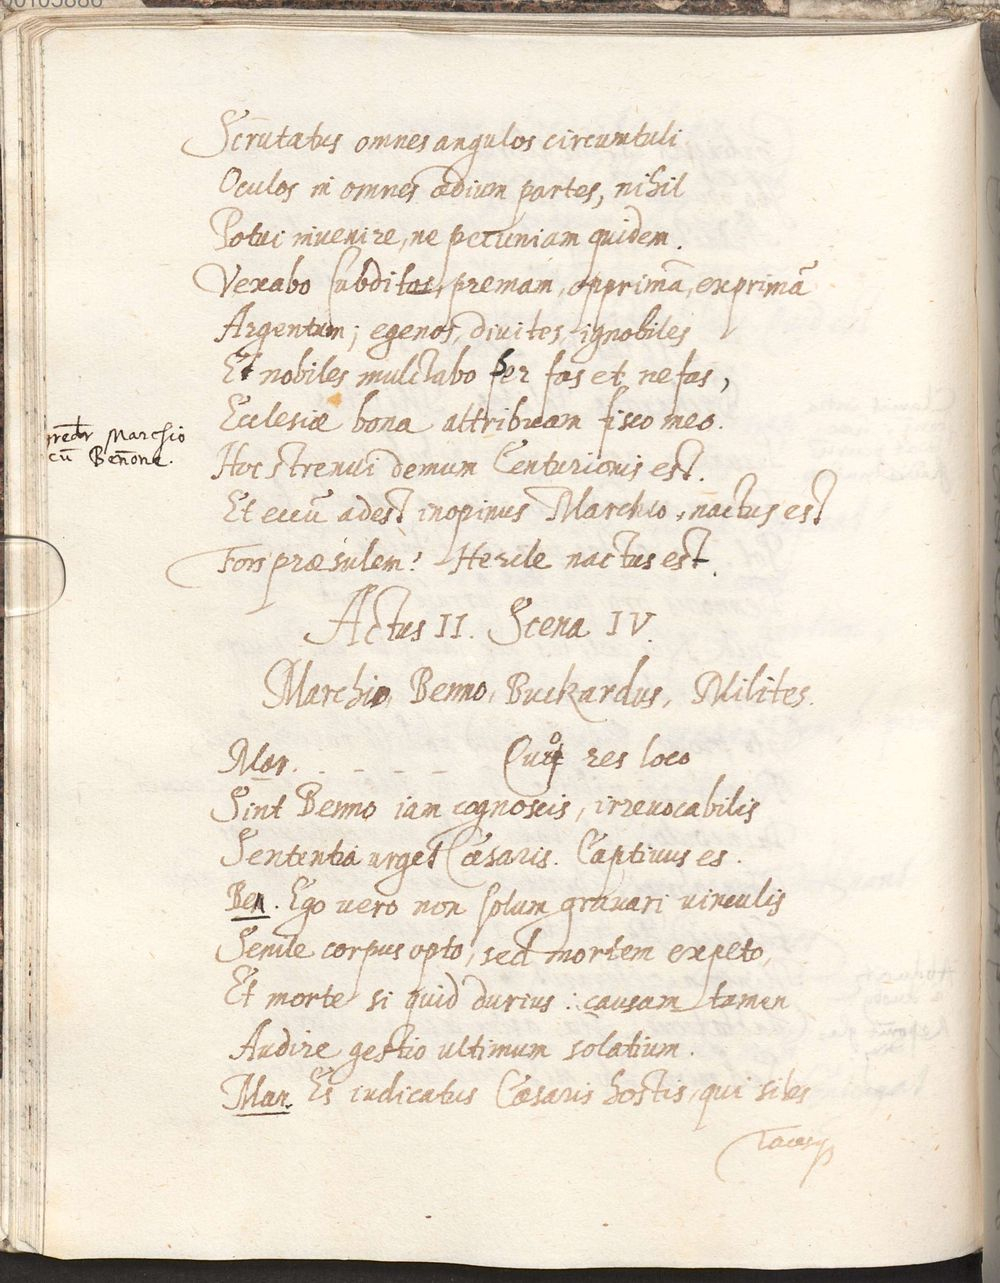 Scrutatus omnes angulos circumtuli
Oculos in omnes ædium partes, nihil
Potui invenire, ne pecuniam quidem.
Vexabo subditos, premam, opprimā, exprimā
Argentum; egenos, divites, ignobiles
Et nobiles mulctabo per fas et nefas,
Ecclesiæ bona attribuam fisco meo.
gredr Marchio
cū Beñone.
Hoc strenui demum Centurionis est.
Et eccū adest inopinus Marchio, nactus est
Fors præsulem? Hercle nactus est.
Actus II. Scena IV.
Marchio, Benno, Buckardus, Milites.
Mar. - - - - Quo res loco
Sint Benno iam cognoscis, irrevocabilis
Sententia urget Cæsaris. Captivus es.
Ben. Ego vero non solum gravari vinculis
Senile corpus opto, sed mortem expeto,
Et morte si quid durius: causam tamen
Audire gestio ultimum solatium.
Mar. Es iudicatus Cæsaris hostis, qui siles